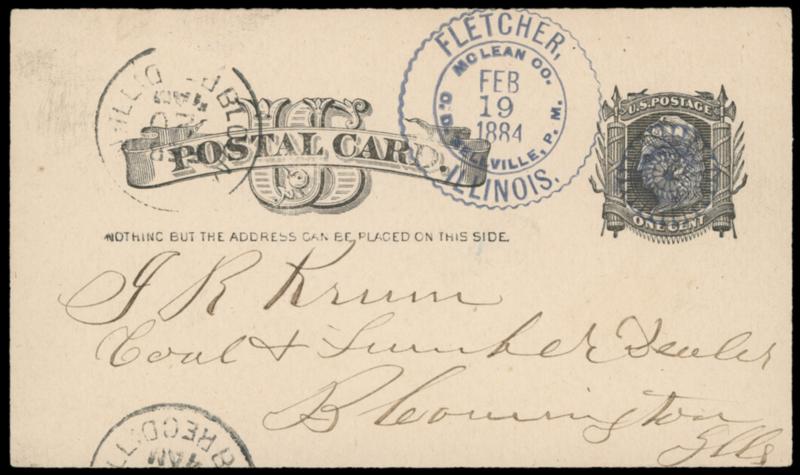 FLETCHER,
MCLEAN CO.
FEB
19
1884
P. M.
ILLINOIS.
U.S. POSTAGE
ONE CENT
US
POSTAL CARD.
NOTHING BUT THE ADDRESS CAN BE PLACED ON THIS SIDE.
J R Krum
Coal & Lumber Dealer
Bloomington
Ills
REC'D
AM